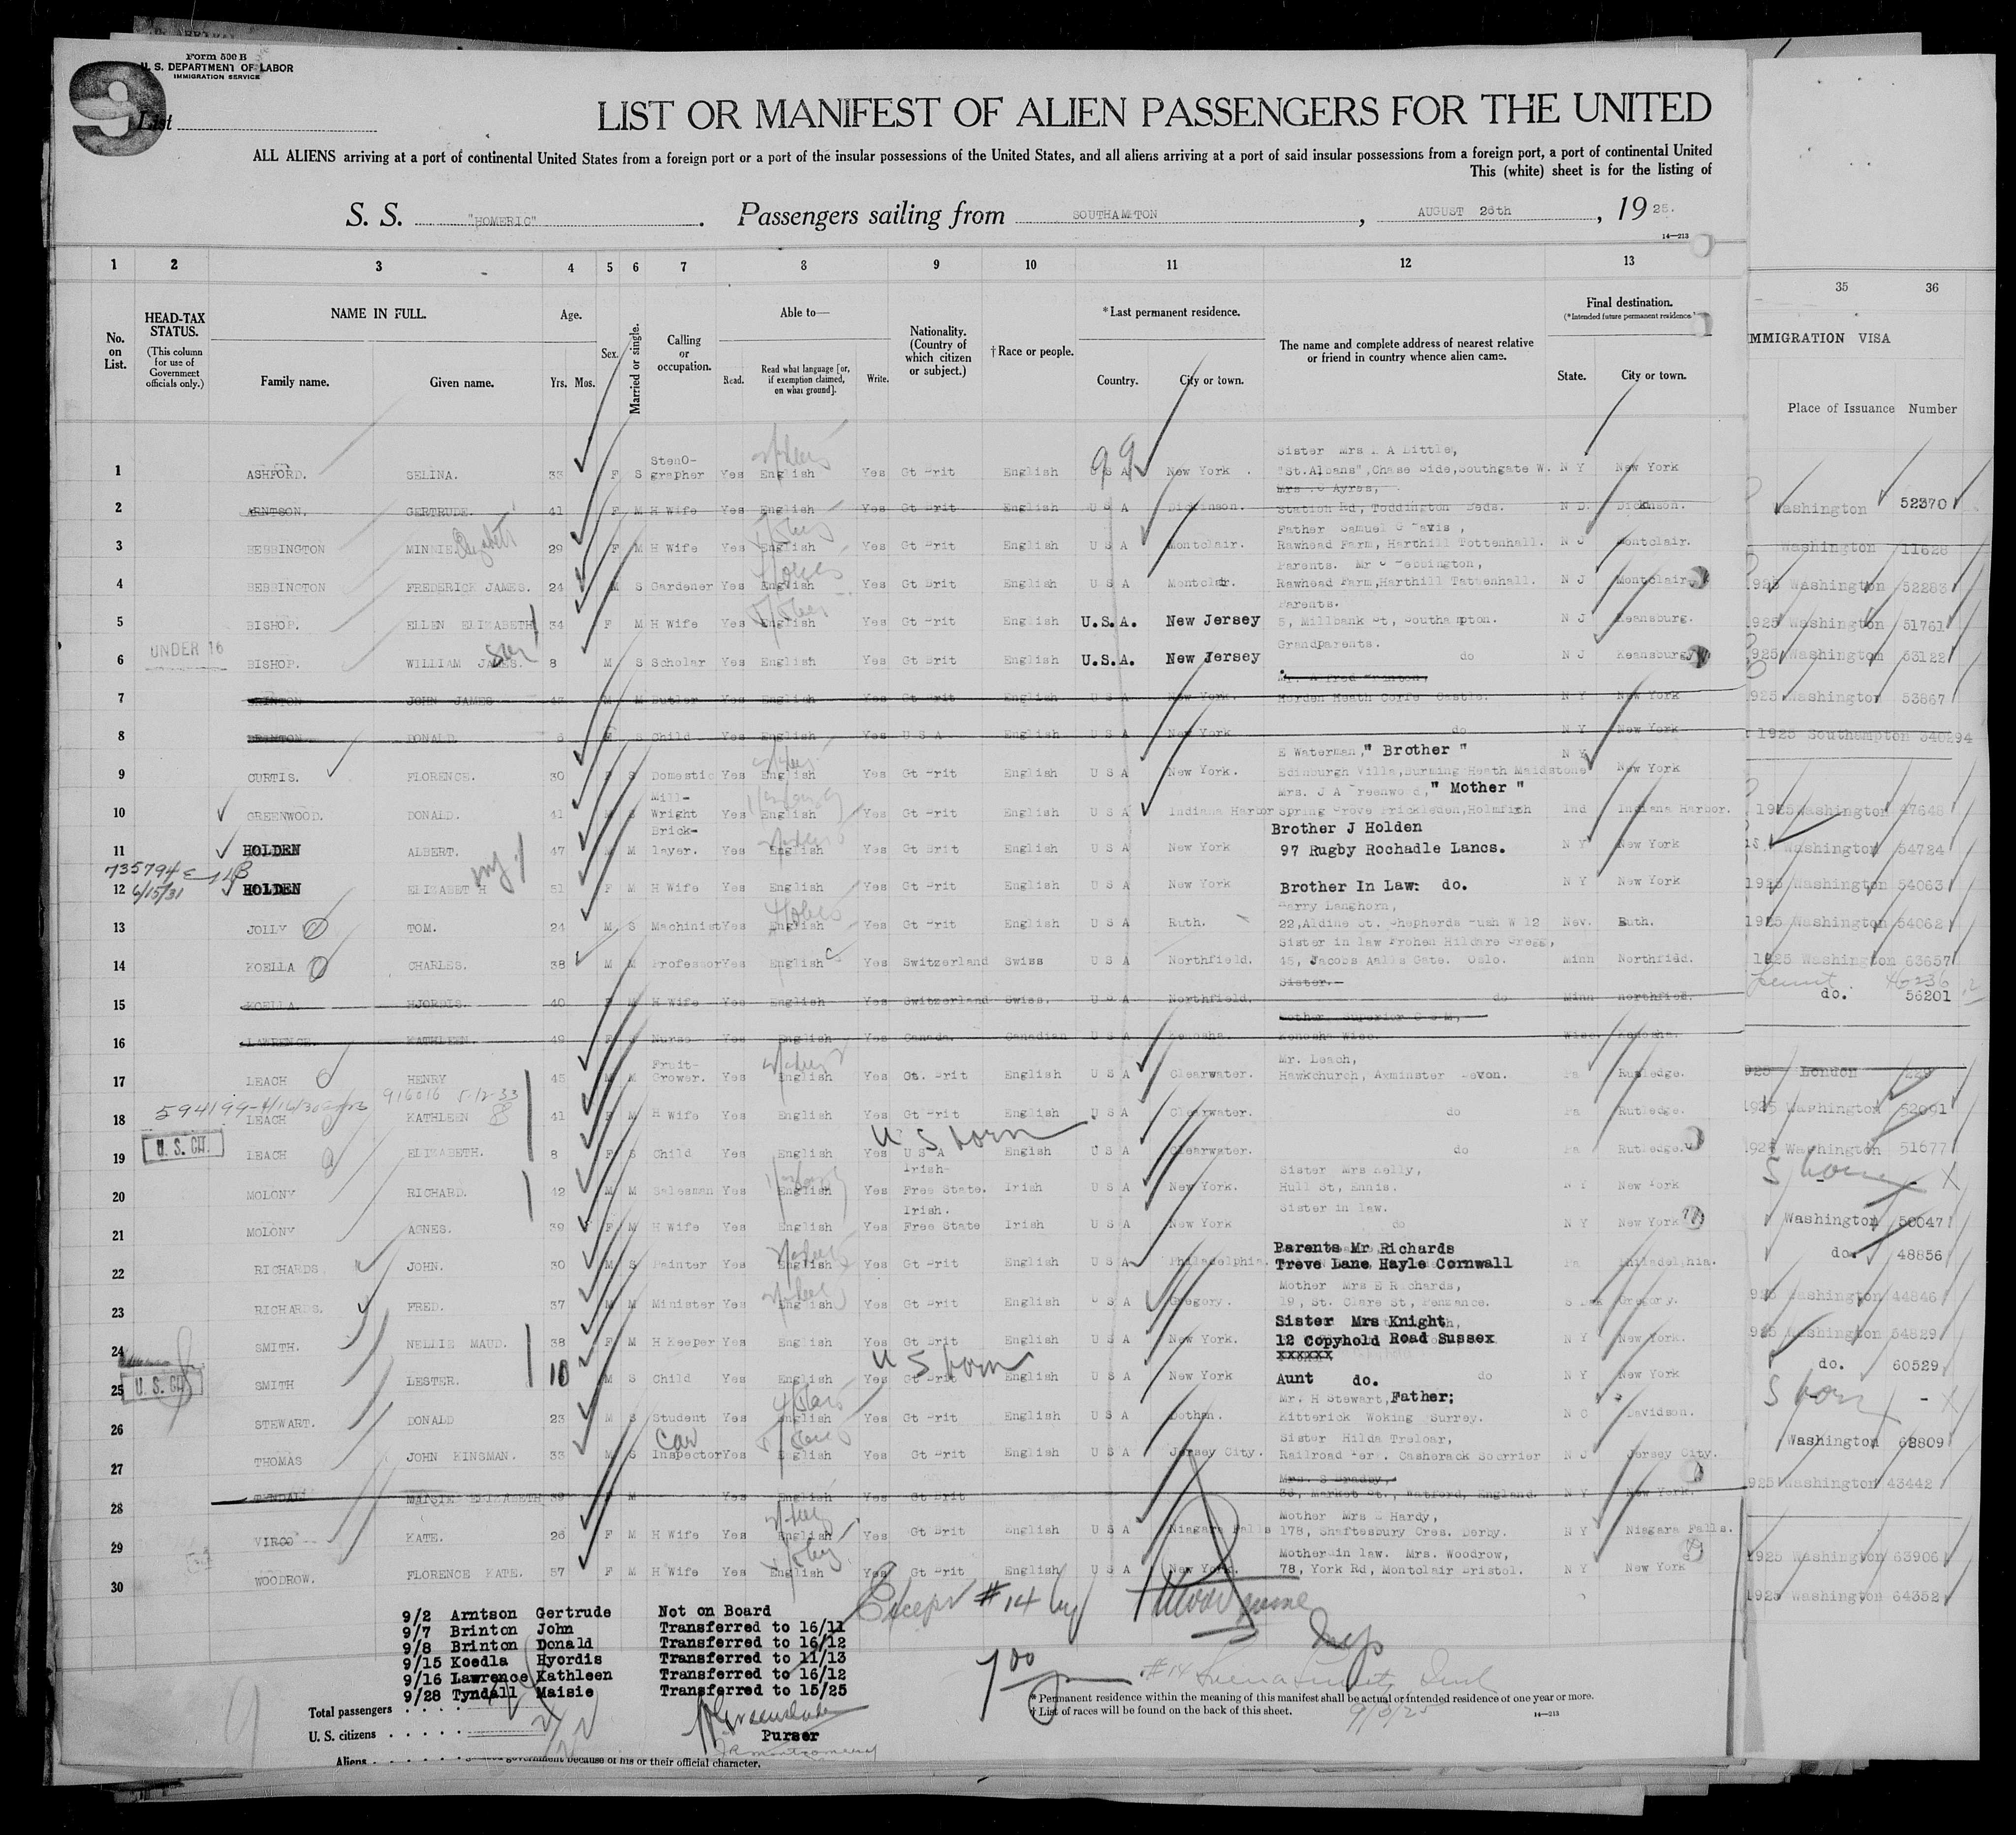 Form 500 B
U. S. DEPARTMENT OF LABOR
IMMIGRATION SERVICE
9
List
LIST OR MANIFEST OF ALIEN PASSENGERS FOR THE UNITED
ALL ALIENS arriving at a port of continental United States from a foreign port or a port of the insular possessions of the United States, and all aliens arriving at a port of said insular possessions from a foreign port, a port of continental United
This (white) sheet is for the listing of
S. S. "HOMERIC". Passengers sailing from SOUTHAMPTON, AUGUST 26th, 1925.
14—213
1 2 3 4 5 6 7 8 9 10 11 12 13 35 36
No. on List.
HEAD-TAX STATUS. (This column for use of Government officials only.)
NAME IN FULL.
Family name. Given name.
Age. Yrs. Mos.
Sex.
Married or single.
Calling or occupation.
Able to—
Read. Read what language [or, if exemption claimed, on what ground]. Write.
Nationality. (Country of which citizen or subject.)
† Race or people.
* Last permanent residence.
Country. City or town.
The name and complete address of nearest relative or friend in country whence alien came.
Final destination. (*Intended future permanent residence.)
State. City or town.
MMIGRATION VISA
Place of Issuance Number
99
Sister Mrs A Little,
1 ASHFORD. SELINA. 33 F S StenO-grapher Yes English Yes Gt Brit English U S A New York. "St.Albans", Chase Side, Southgate W. N Y New York
Mrs Ayres,
2 ARNTSON. GERTRUDE. 41 F M H Wife Yes English Yes Gt Brit English U S A Dickinson. Station Rd, Toddington Beds. N D. Dickinson. Washington 52370
Father Samuel Davis,
3 BEBBINGTON MINNIE Elizabeth 29 F M H Wife Yes English Yes Gt Brit English U S A Montclair. Rawhead Farm, Harthill Tottenhall. N J Montclair. Washington 11628
Parents. Mr Bebbington,
4 BEBBINGTON FREDERICK JAMES. 24 M S Gardener Yes English Yes Gt Brit English U S A Montclair. Rawhead Farm, Harthill Tattenhall. N J Montclair. 1925 Washington 52283
Parents.
5 BISHOP. ELLEN ELIZABETH 34 F M H Wife Yes English Yes Gt Brit English U.S.A. New Jersey 5, Millbank St, Southampton. N J Keansburg. 1925 Washington 51761
UNDER 16
Grandparents.
6 BISHOP. WILLIAM JAMES. son 8 M S Scholar Yes English Yes Gt Brit English U.S.A. New Jersey do N J Keansburg. 1925 Washington 53122
7 BRINTON JOHN JAMES M M Butler Yes English Yes Gt Brit English U S A New York. Harden Heath Corfe Castle. N Y New York 1925 Washington 53867
8 BRINTON DONALD S Child Yes English Yes U S A English U S A New York do N Y New York 1925 Southampton 340294
E Waterman, " Brother " N Y
9 CURTIS. FLORENCE. 30 F S Domestic Yes English Yes Gt Brit English U S A New York. Edinburgh Villa, Surming Heath Maidstone New York
Mrs. J A Greenwood, " Mother "
10 GREENWOOD. DONALD. 41 M S Mill-Wright Yes English Yes Gt Brit English U S A Indiana Harbor Spring Grove Prickleden, Holmfirh Ind Indiana Harbor. 1925 Washington 47648
Brother J Holden
11 HOLDEN ALBERT. 47 M M Brick-layer. Yes English Yes Gt Brit English U S A New York 97 Rugby Rochadle Lancs. N Y New York Washington 54724
735794
6/15/31
12 HOLDEN ELIZABETH 51 F M H Wife Yes English Yes Gt Brit English U S A New York Brother In Law: do. N Y New York 1925 Washington 54063
Harry Langhorn,
13 JOLLY TOM. 24 M S Machinist Yes English Yes Gt Brit English U S A Ruth. 22, Aldine St. Shepherds Bush W 12 Nev. Ruth. 1925 Washington 54062
Sister in law Frohen Hildare Gress,
14 KOELLA CHARLES. 38 M M Professor Yes English Yes Switzerland Swiss U S A Northfield. 45, Jacobs Aalls Gate. Oslo. Minn Northfidd. 1925 Washington 63657
Sister.
15 KOELLA HJORDIS. 40 F M H Wife Yes English Yes Switzerland Swiss. U S A Northfield. do Minn Northfied. do. 56201
Mother Superior C S M,
16 LAWRENCE. KATHLEEN. 49 F S Nurse Yes English Yes Canada. Canadian U S A Kenosha. Kenosha Wisc. Wisc. Kenosha.
Mr. Leach,
17 LEACH HENRY 45 M M Fruit-Grower. Yes English Yes Gt. Brit English U S A Clearwater. Hawkchurch, Axminster Devon. Pa Rutledge. 925 London 229
916016 5-12-33
594199-4/16/30
18 LEACH KATHLEEN 41 F M H Wife Yes English Yes Gt Brit English U S A Clearwater. do Pa Rutledge. 1925 Washington 52091
U. S. CIT.
U S born
19 LEACH ELIZABETH. 8 F S Child Yes English Yes U S A Engish U S A Clearwater. do Pa Rutledge. 1925 Washington 51677
Sister Mrs Kelly,
20 MOLONY RICHARD. 42 M M Salesman Yes English Yes Irish Free State. Irish U S A New York. Hull St, Ennis. N Y New York S born - X
Sister in law.
21 MOLONY AGNES. 39 F M H Wife Yes English Yes Irish. Free State Irish U S A New York do N Y New York Washington 50047
Parents Mr Richards
22 RICHARDS JOHN. 30 M S Painter Yes English Yes Gt Brit English U S A Philadelphia. Treve Lane Hayle Cornwall Pa Philadelphia. do. 48856
Mother Mrs E Richards,
23 RICHARDS. FRED. 37 M M Minister Yes English Yes Gt Brit English U S A Gregory. 19, St. Clare St, Penzance. S Dak Gregory. 925 Washington 44846
Sister Mrs Knight
24 SMITH. NELLIE MAUD. 38 F M H Keeper Yes English Yes Gt Brit English U S A New York. 12 Copyhold Road Sussex N Y New York. 925 Washington 54829
XXXXXX
U. S. CIT.
U S born
25 SMITH LESTER. 10 M S Child Yes English Yes Gt Brit English U S A New York Aunt do. do N Y New York do. 60529
Mr. H Stewart, Father;
26 STEWART. DONALD 23 M S Student Yes English Yes Gt Brit English U S A Dothan. Kitterick Woking Surrey. N C Davidson. S born - X
Sister Hilda Treloar,
27 THOMAS JOHN KINSMAN. 33 M S Car Inspector Yes English Yes Gt Brit English U S A Jersey City. Railroad Ter. Casherack Scorrier N J Jersey City. Washington 62809
Mrs. S Bradey,
28 TYNDALL MAISIE ELIZABETH 39 F M Yes English Yes Gt Brit 33, Market St., Watford, England. N Y New York. 1925 Washington 43442
Mother Mrs E Hardy,
29 VIRGO KATE. 26 F M H Wife Yes English Yes Gt Brit English U S A Niagara Falls 178, Shaftesbury Cres. Derby. N Y Niagara Falls.
Mother in law. Mrs. Woodrow,
30 WOODROW. FLORENCE KATE. 57 F M H Wife Yes English Yes Gt Brit English U S A New York. 78, York Rd, Montclair Bristol. N Y New York 1925 Washington 63906
1925 Washington 64352
Except #14 by
9/2 Arntson Gertrude Not on Board
9/7 Brinton John Transferred to 16/11
9/8 Brinton Donald Transferred to 16/12
9/15 Koedla Hyordis Transferred to 11/13
9/16 Lawrence Kathleen Transferred to 16/12
9/28 Tyndall Maisie Transferred to 15/25
Total passengers
U. S. citizens
Aliens
Purser
#14
9/3/25
* Permanent residence within the meaning of this manifest shall be actual or intended residence of one year or more.
† List of races will be found on the back of this sheet.
14—213
government because of his or their official character.